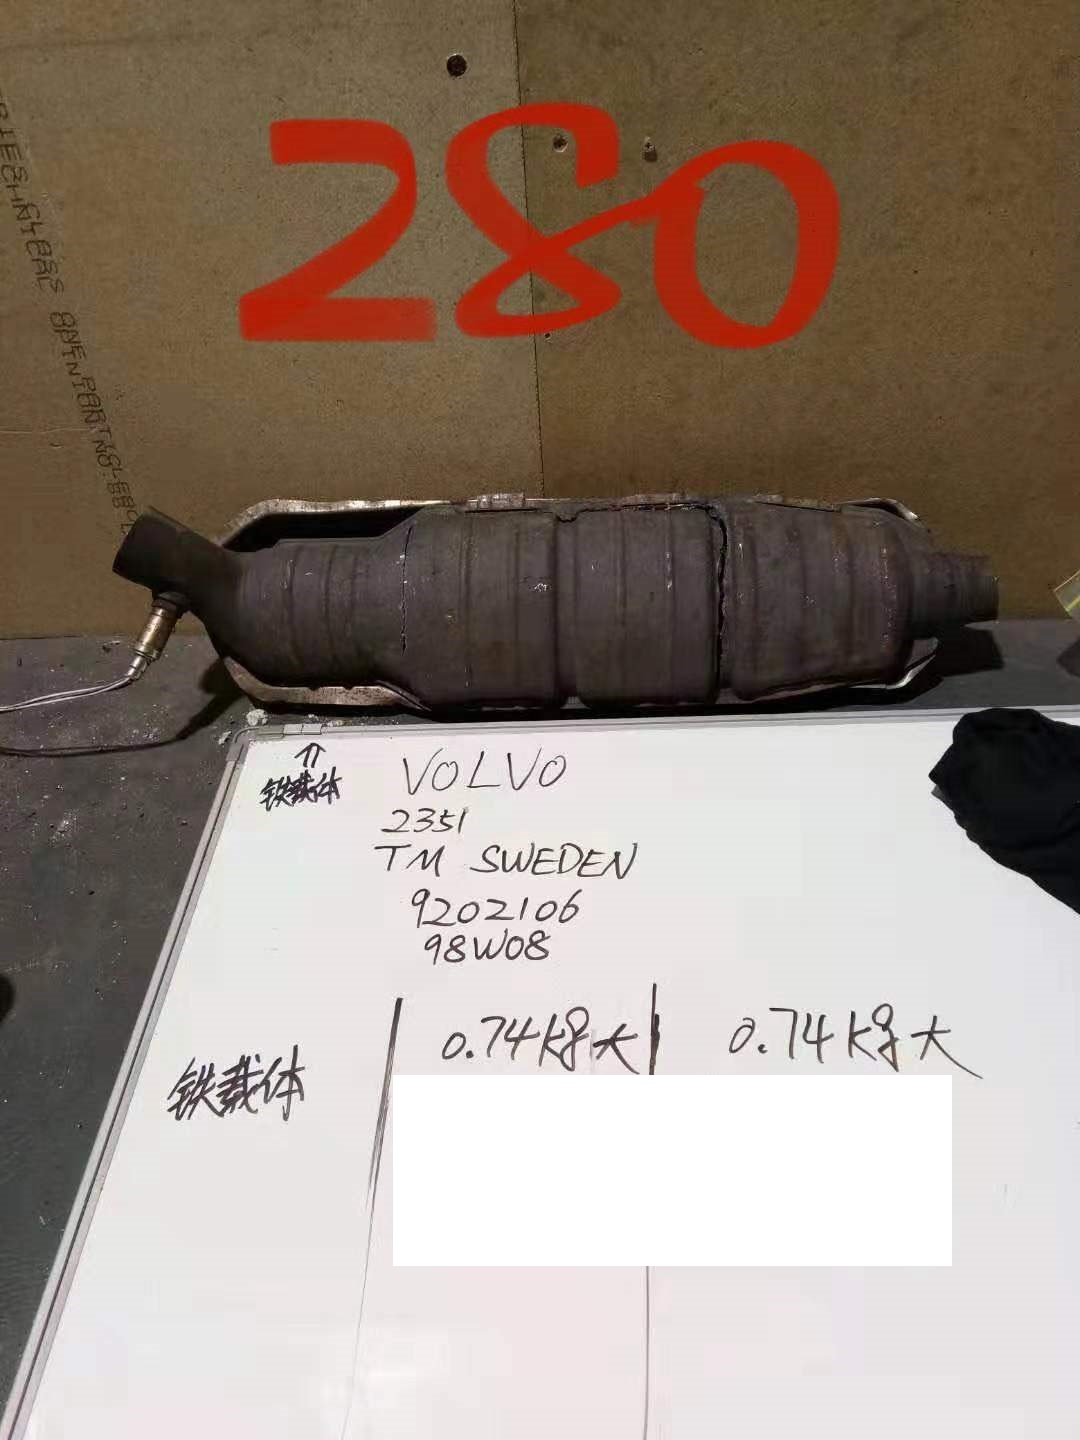 280
⇑
铁载体
VOLVO
2351
TM SWEDEN
9202106
98W08
铁载体
0.74kg大
0.74kg大